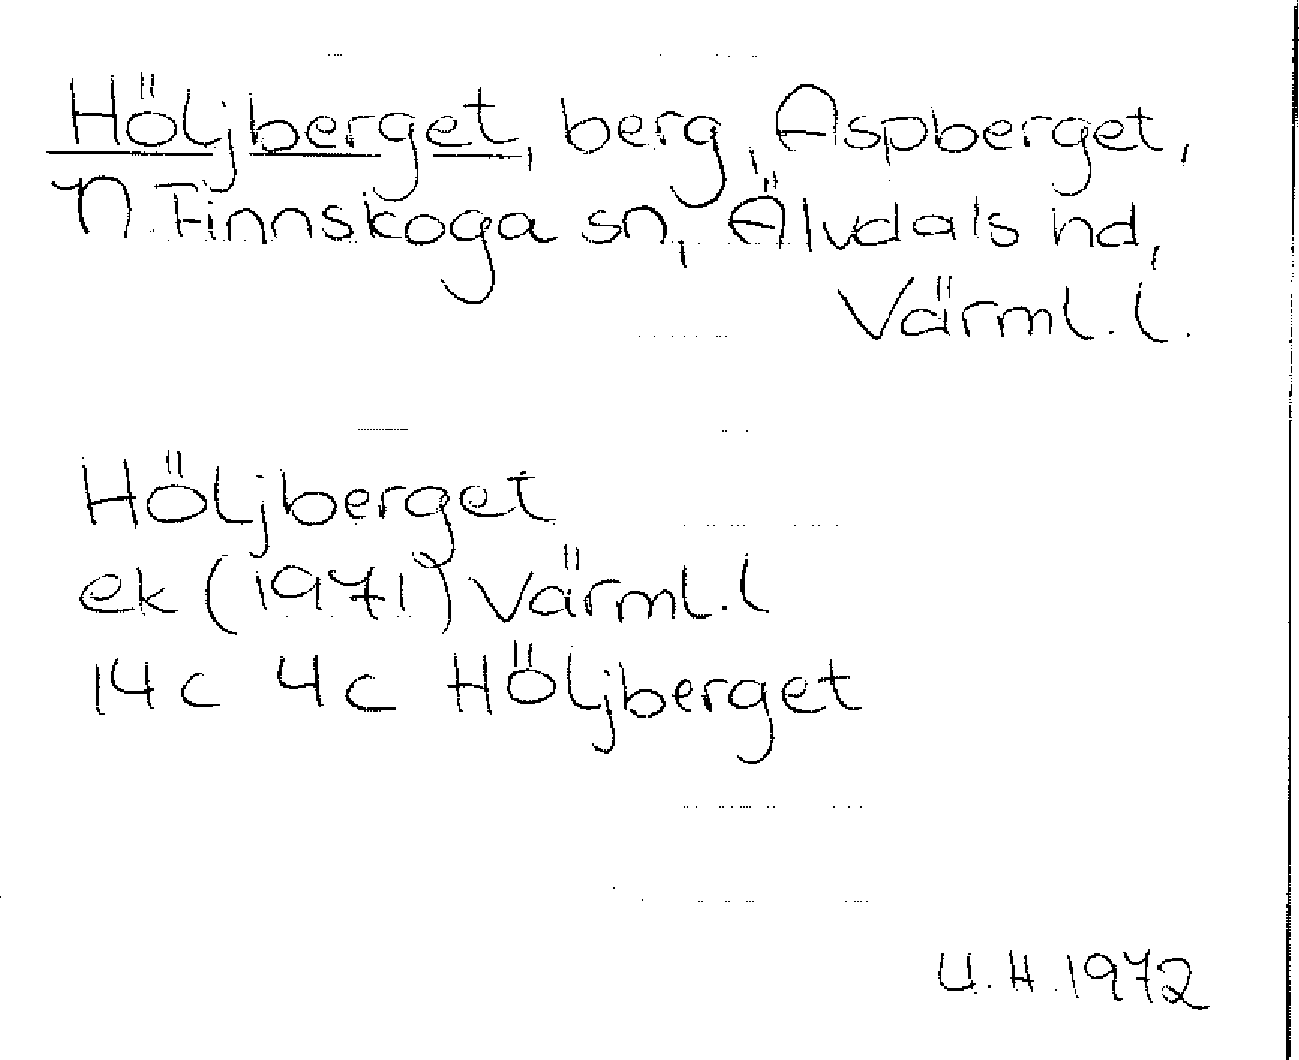 Höljberget, berg, Aspberget,
N Finnskoga sn, Älvdals hd,
Värml. l.
Höljberget
ek (1971) Värml. l
14c 4c Höljberget
U.H. 1972